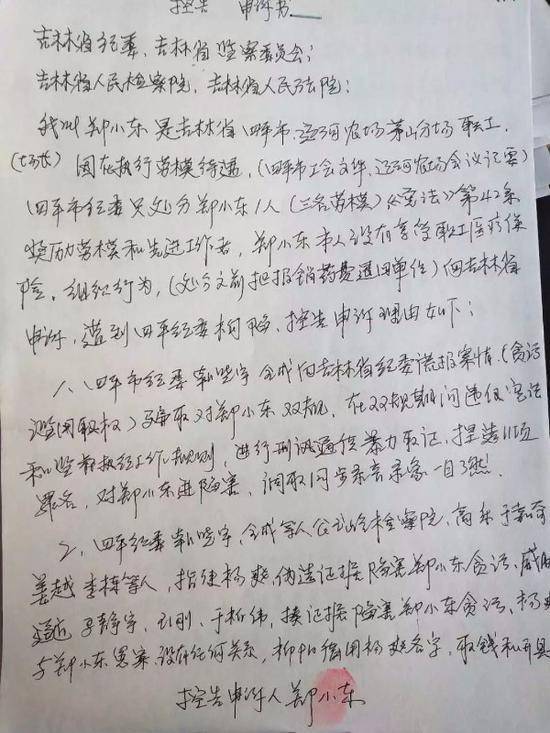 控告 申诉书
吉林省纪委、吉林省监察委员会；
吉林省人民检察院，吉林省人民法院：
我叫郑小东 是吉林省四平市，辽河农场茅山分场职工，
(场长) 因在执行劳模待遇，(四平市工会文件，辽河农场会议记要)
四平市纪委只处分郑小东1人 (三名劳模)《宪法》第42条
奖历劳模和先进工作者，郑小东本人没有享受职工医疗保
险，组织行为，(处分文前把报销药费退回单位) 向吉林省
申诉，遭到四平纪委构陷，控告申诉理由如下：
1、四平市纪委 宇 全成向吉林省纪委谎报案情 (贪污
滥用职权) 骗取对郑小东双规，在双规期间违反宪法
和监察执纪工作规则，进行刑讯逼供暴力取证，捏造11项
罪名，对郑小东进陷害，调取同步录音录像一目了然.
2、四平纪委 宇，全成等人公
姜越 李栋等人，指使杨爽，伪造证据陷害郑小东贪污，威胁
于静宇，王刚，于析伟，证据陷害郑小东贪污，杨爽
与郑小东男案，没有任何关系，柳 借用杨爽名字，取钱和开具
控告申诉人 郑小东